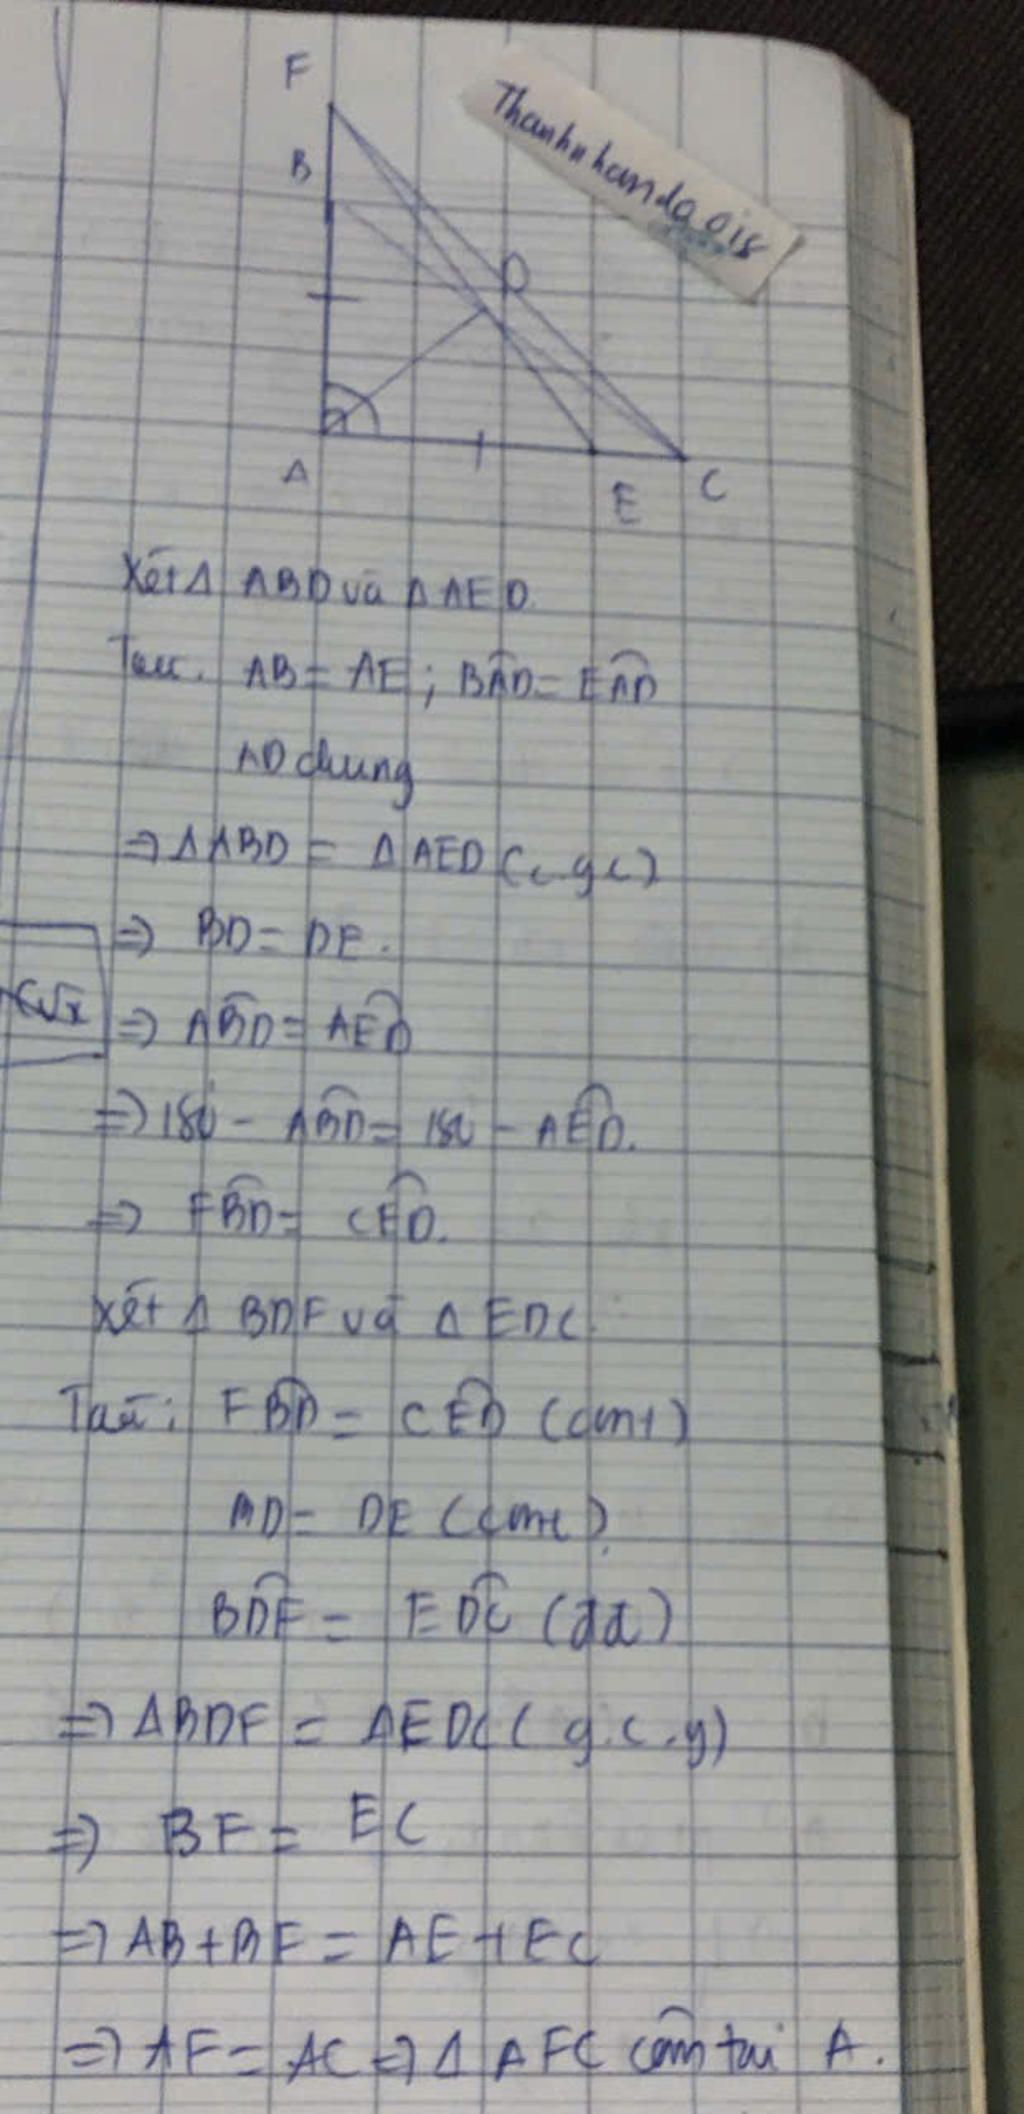 F
B
Thanhnhanda018
D
A
E
C
Xét Δ ABD và Δ AED.
Ta có. AB = AE ; BAD = EAD
AD chung
⇒ Δ ABD = Δ AED (c g c)
⇒ BD = DE.
C√x
⇒ ABD = AED
⇒ 180 - ABD = 180 - AED.
⇒ FBD = CED.
Xét Δ BDF và Δ EDC
Ta có: FBD = CED (cmt)
BD = DE (cmt)
BDF = EDC (đđ)
⇒ ΔBDF = ΔEDC (g.c.g)
⇒ BF = EC
⇒ AB + BF = AE + EC
⇒ AF = AC ⇒ Δ AFC cân tại A.